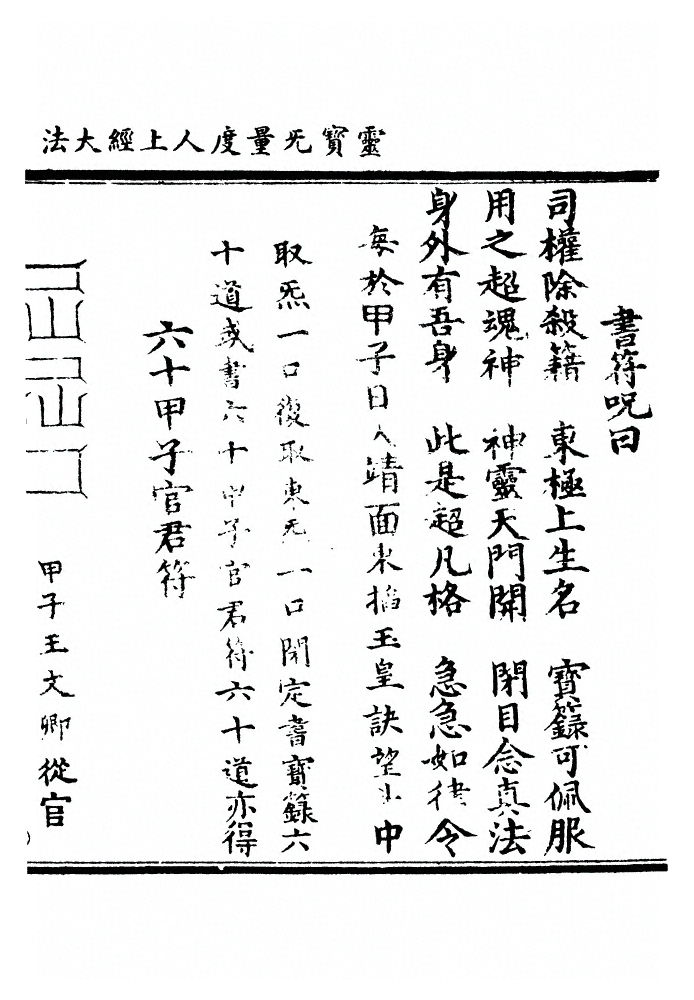 靈寶旡量度人上經大法
書符呪曰
司權除殺籍　東極上生名　寶籙可佩服
用之超魂神　神靈天門開　閉目念真法
身外有吾身　此是超凡格　急急如律令
每於甲子日入靖面東掐玉皇訣望斗中
取炁一口復取東旡一口閉定書寶籙六
十道或書六十甲子官君符六十道亦得
六十甲子官君符
甲子王文卿從官